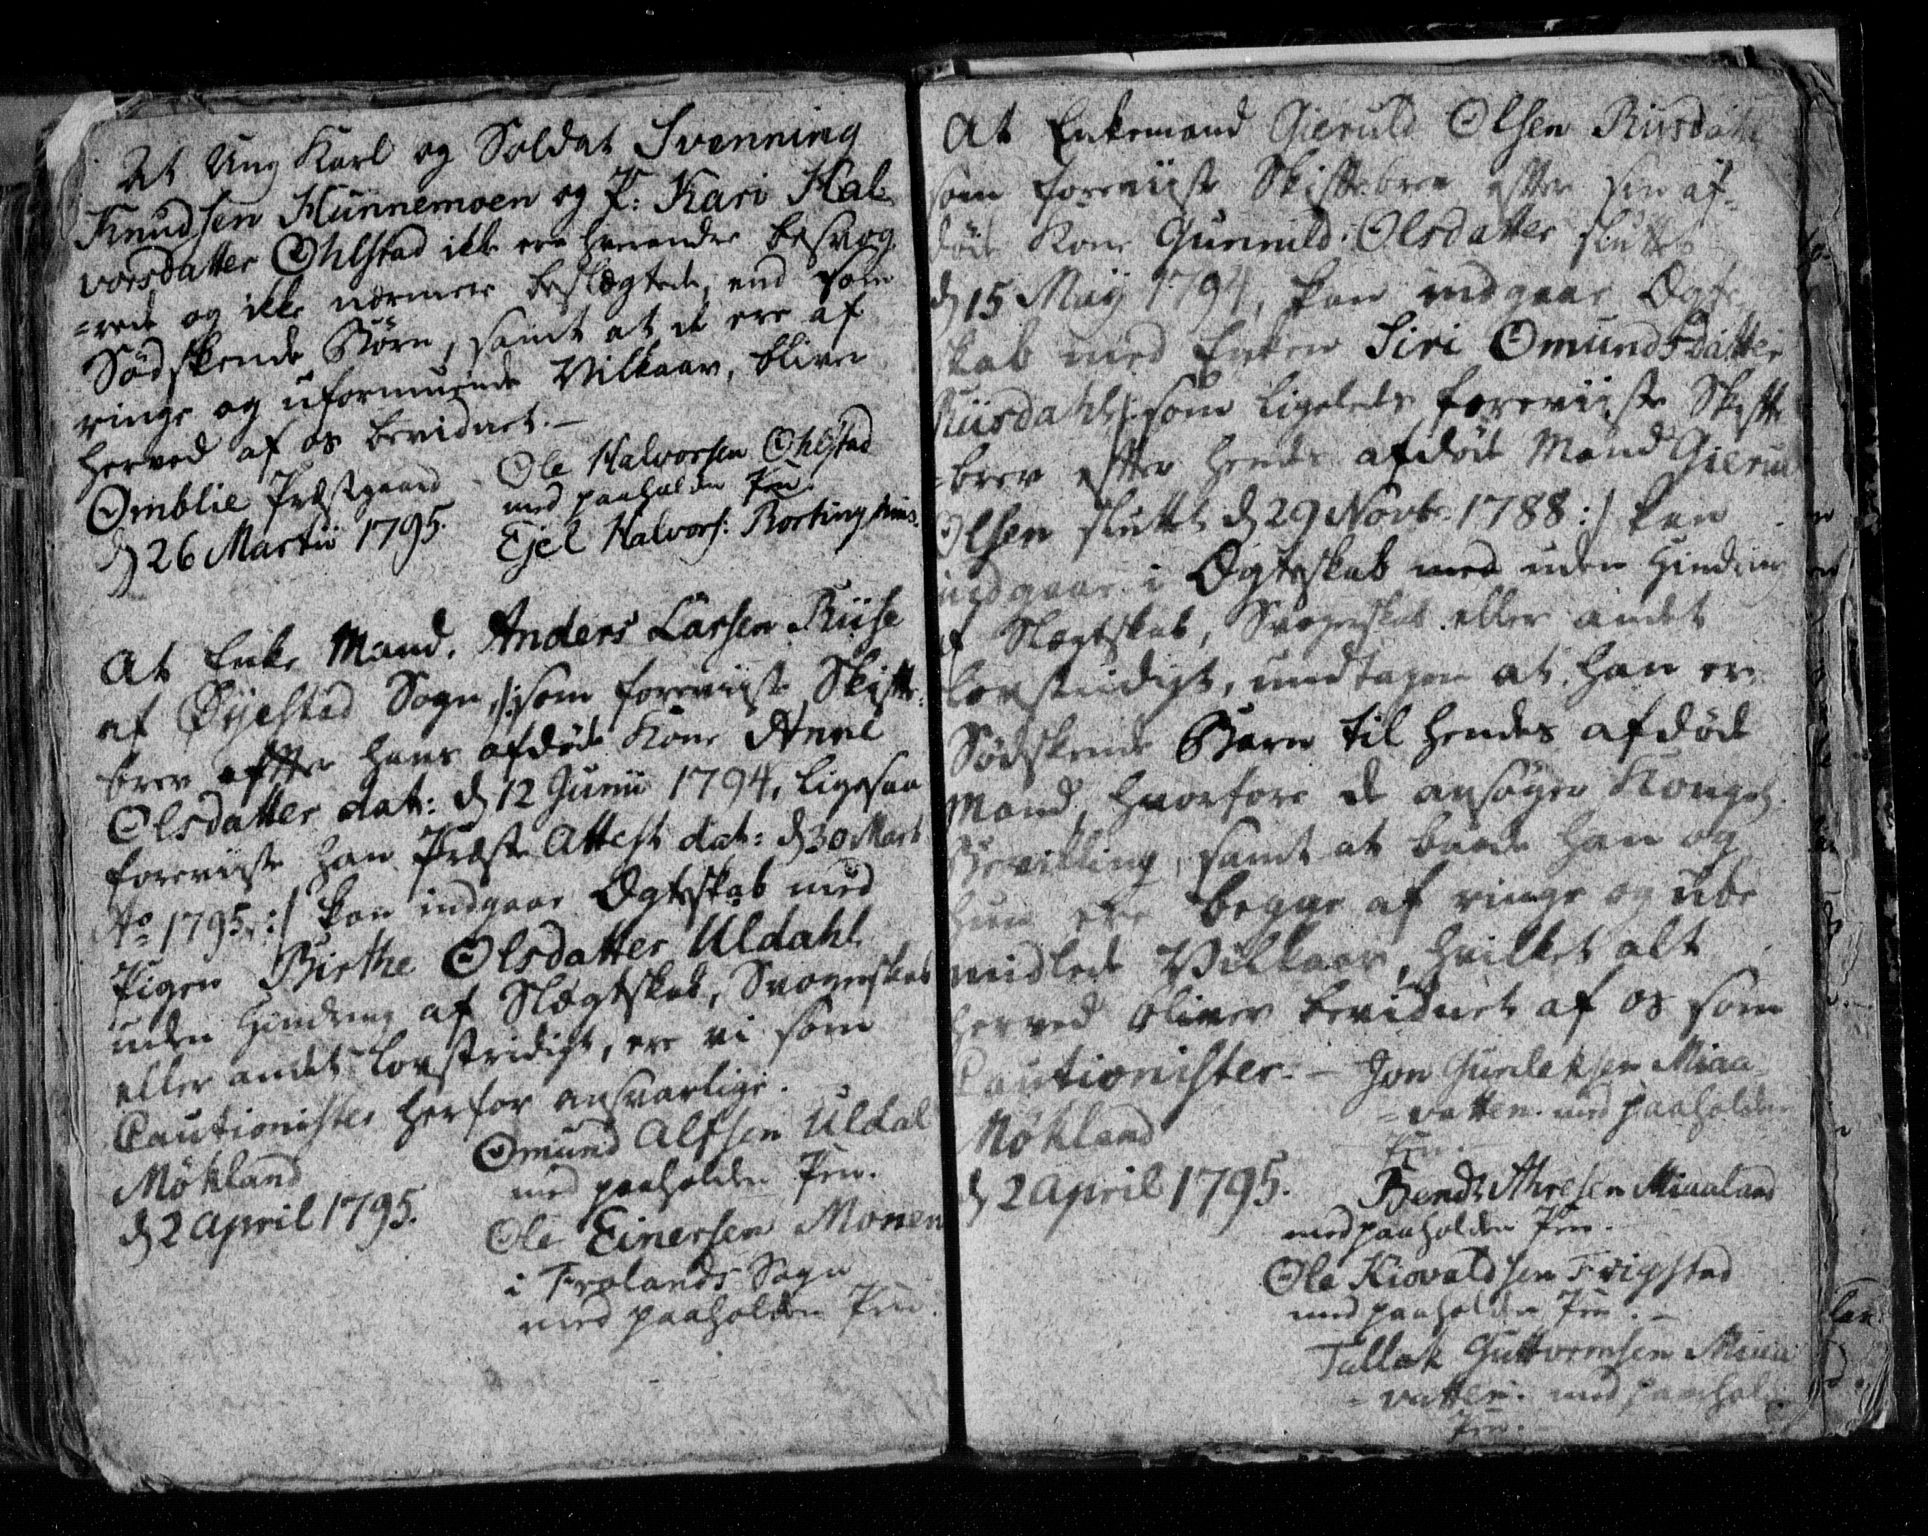 At Ung Karl og Soldat Svenning
Knudsen Hunnemoen og P: Kari Hal-
vorsdatter Ohlstad ikke ere hverandre besvog
=rede og ikke nærmere beslægtede, end som
Södskende Börn, samt at de ere af
ringe og uformuende Vilkaar, bliver
herved af os bevidnet.-
Omblie Præstgaard
d 26 Martii 1795.
Ole Halvorsen Ohlstad
med paaholden Pen.
Ejel Halvors:
At Enke Mand. Anders Larsen Riise
af Øyestad Sogn, /: som foreviiste Skifte-
brev efter hans afdøde Kone Anne
Olsdatter dat: d 12 Junii 1794, ligesaa
foreviiste han Præste Attest dat: d 30 Mart
Ao 1795 :/ kan indgaae Ægteskab med
Pigen Birthe Olsdatter Uldahl
uden Hindring af Slægtskab, Svogerskab
eller andet lovstridigt, ere vi som
Cautionister herfor ansvarlige.
Møkland
d 2 April 1795.
Omund Alfsen Uldal
med paaholden Pen.
Ole Einersen Monen
i Frolands Sogn
med paaholden Pen.
At Enkemand Gieruld Olsen Riisdahl
som foreviiste Skiftebrev efter sin af-
døde Kone Gunnild Olsdatter sluttet
d 15 May 1794, kan indgaae Ægte
skab med Enken Siri Omundsdatter
Riisdahl /: som ligeledes foreviiste Skifte
=brev efter hendes afdøde Mand Gieruld
Olsen sluttet d 29 Novbr 1788 :/ kan
indgaae i Ægteskab med uden Hindring
af Slægtskab, Svogerskab eller andet
lovstridigt, undtagen at han er
Södskende Barn til hendes afdøde
Mand, hvorfore de ansøger Kongel.
Bevilling, samt at baade han og
hun ere begge af ringe og ube
midlede Vilkaar, hvilket alt
herved bliver bevidnet af os som
Cautionister. -
Møkland
d 2 April 1795.
Jon Gunleksen Miaa-
=vatten. med paaholden
Pen.
Bendt Aresen Miaaland
med paaholden Pen.
Ole Kiovaldsen Frigstad
med paaholden Pen. -
Tallak Guttormsen Miaa
=vatten. med paahol-
Pen.